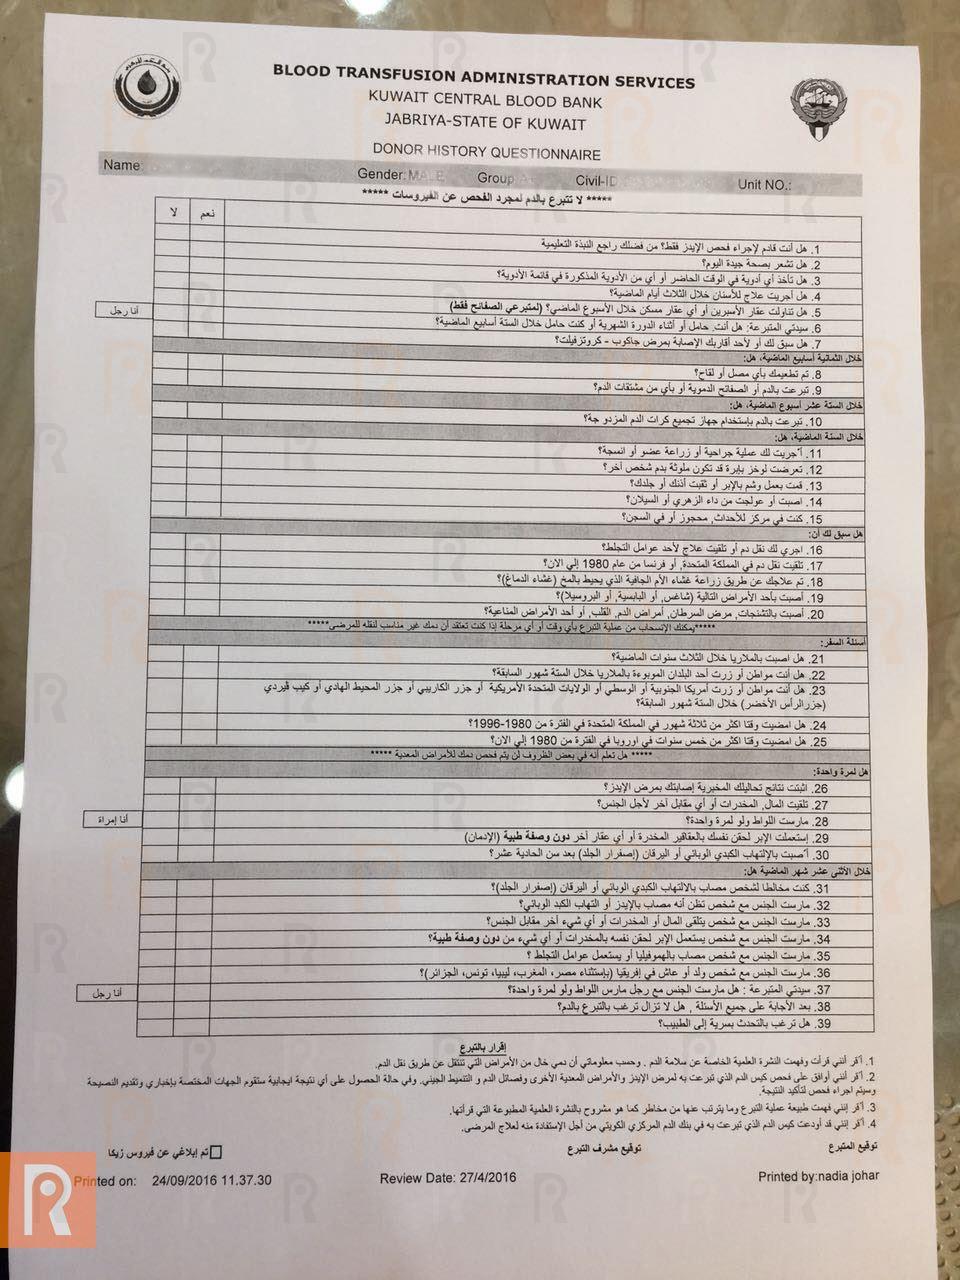 BLOOD TRANSFUSION ADMINISTRATION SERVICES
KUWAIT CENTRAL BLOOD BANK
JABRIYA-STATE OF KUWAIT
DONOR HISTORY QUESTIONNAIRE
Name: Gender: MALE Group Civil-ID Unit NO.:
***** لا تتبرع بالدم لمجرد الفحص عن الفيروسات *****
نعم لا
1. هل أنت قادم لإجراء فحص الإيدز فقط؟ من فضلك راجع النبذة التعليمية
2. هل تشعر بصحة جيدة اليوم؟
3. هل تأخذ أي أدوية في الوقت الحاضر أو أي من الأدوية المذكورة في قائمة الأدوية؟
4. هل أجريت علاج للأسنان خلال الثلاث أيام الماضية؟
5. هل تناولت عقار الأسبرين أو أي عقار مسكن خلال الأسبوع الماضي؟ (لمتبرعي الصفائح فقط)
6. سيدتي المتبرعة: هل أنت. حامل أو أثناء الدورة الشهرية أو كنت حامل خلال الستة أسابيع الماضية؟
أنا رجل
7. هل سبق لك أو لأحد أقاربك الإصابة بمرض جاكوب - كروتزفيلت؟
خلال الثمانية أسابيع الماضية، هل:
8. تم تطعيمك بأي مصل أو لقاح؟
9. تبرعت بالدم أو الصفائح الدموية أو بأي من مشتقات الدم؟
خلال الستة عشر أسبوع الماضية، هل:
10. تبرعت بالدم بإستخدام جهاز تجميع كرات الدم المزدوجة؟
خلال السنة الماضية، هل:
11. أجريت لك عملية جراحية أو زراعة عضو أو انسجة؟
12. تعرضت لوخز بإبرة قد تكون ملوثة بدم شخص آخر؟
13. قمت بعمل وشم بالإبر أو ثقبت أذنك أو جلدك؟
14. اصبت أو عولجت من داء الزهري أو السيلان؟
15. كنت في مركز للأحداث, محجوز أو في السجن؟
هل سبق لك أن:
16. اجري لك نقل دم أو تلقيت علاج لأحد عوامل التجلط؟
17. تلقيت نقل دم في المملكة المتحدة, أو فرنسا من عام 1980 إلي الان؟
18. تم علاجك عن طريق زراعة غشاء الأم الجافية الذي يحيط بالمخ (غشاء الدماغ)؟
19. أصبت بأحد الأمراض التالية (شاغس, أو البابسية, أو البروسيلا)؟
20. أصبت بالتشنجات, مرض السرطان, أمراض الدم, القلب, أو أحد الأمراض المناعية؟
*****يمكنك الإنسحاب من عملية التبرع بأي وقت أو أي مرحلة إذا كنت تعتقد أن دمك غير مناسب لنقله للمرضى*****
أسئلة السفر:
21. هل اصبت بالملاريا خلال الثلاث سنوات الماضية؟
22. هل أنت مواطن أو زرت أحد البلدان الموبوءة بالملاريا خلال الستة شهور السابقة؟
23. هل أنت مواطن أو زرت أمريكا الجنوبية أو الوسطي أو الولايات المتحدة الأمريكية أو جزر الكاريبي أو جزر المحيط الهادي أو كيب فيردي
(جزر الرأس الأخضر) خلال الستة شهور السابقة؟
24. هل امضيت وقتا اكثر من ثلاثة شهور في المملكة المتحدة في الفترة من 1980-1996؟
25. هل امضيت وقتا اكثر من خمس سنوات في اوروبا في الفترة من 1980 إلي الان؟
***** هل تعلم أنه في بعض الظروف لن يتم فحص دمك للأمراض المعدية *****
هل لمرة واحدة:
26. اثبتت نتائج تحاليلك المخبرية إصابتك بمرض الإيدز؟
27. تلقيت المال, المخدرات أو أي مقابل آخر لأجل الجنس؟
28. مارست اللواط ولو لمرة واحدة؟
أنا إمرأة
29. إستعملت الإبر لحقن نفسك بالعقاقير المخدرة أو أي عقار آخر دون وصفة طبية (الإدمان)
30. أصبت بالإلتهاب الكبدي الوبائي أو اليرقان (إصفرار الجلد) بعد سن الحادية عشر؟
خلال الأثنى عشر شهر الماضية هل:
31. كنت مخالطا لشخص مصاب بالالتهاب الكبدي الوبائي أو اليرقان (إصفرار الجلد)؟
32. مارست الجنس مع شخص تظن أنه مصاب بالإيدز أو التهاب الكبد الوبائي؟
33. مارست الجنس مع شخص يتلقى المال أو المخدرات أو أي شيء آخر مقابل الجنس؟
34. مارست الجنس مع شخص يستعمل الإبر لحقن نفسه بالمخدرات أو أي شيء من دون وصفة طبية؟
35. مارست الجنس مع شخص مصاب بالهموفيليا أو يستعمل عوامل التجلط ؟
36. مارست الجنس مع شخص ولد أو عاش في إفريقيا (بإستثناء مصر، المغرب، ليبيا، تونس، الجزائر)؟
37. سيدتي المتبرعة : هل مارست الجنس مع رجل مارس اللواط ولو لمرة واحدة؟
أنا رجل
38. بعد الأجابة على جميع الأسئلة , هل لا تزال ترغب بالتبرع بالدم؟
39. هل ترغب بالتحدث بسرية إلى الطبيب؟
إقرار بالتبرع
1. أقر أنني قرأت وفهمت النشرة العلمية الخاصة عن سلامة الدم . وحسب معلوماتي أن دمي خال من الأمراض التي تنتقل عن طريق نقل الدم.
2. أقر أنني أوافق على فحص كيس الدم الذي تبرعت به لمرض الإيدز والأمراض المعدية الأخرى وفصائل الدم و التنميط الجيني. وفي حالة الحصول على أي نتيجة ايجابية ستقوم الجهات المختصة بإخباري وتقديم النصيحة
وسيتم اجراء فحص لتأكيد النتيجة.
3. أقر إنني فهمت طبيعة عملية التبرع وما يترتب عنها من مخاطر كما هو مشروح بالنشرة العلمية المطبوعة التي قرأتها.
4. أقر إنني قد أودعت كيس الدم الذي تبرعت به في بنك الدم المركزي الكويتي من أجل الإستفادة منه لعلاج المرضى.
توقيع المتبرع توقيع مشرف التبرع تم إبلاغي عن فيروس زيكا
Printed on: 24/09/2016 11.37.30 Review Date: 27/4/2016 Printed by:nadia johar